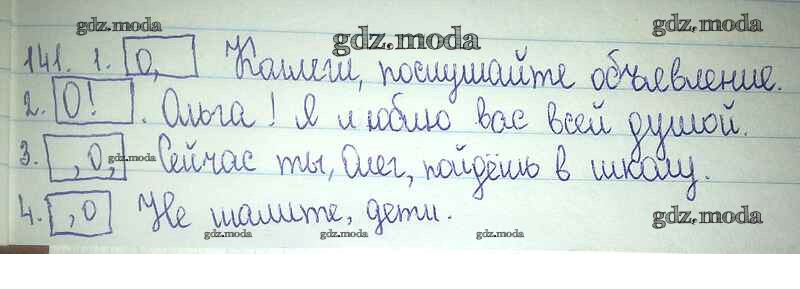 gdz.moda
gdz.moda gdz.moda
141. 1. О, Коллеги, послушайте объявление.
2. О! . Ольга! Я люблю вас всей душой.
gdz.moda gdz.moda
3. , О, gdz.moda Сейчас ты, Олег, пойдёшь в школу.
4. , О Не шалите, дети. gdz.moda
gdz.moda gdz.moda gdz.moda